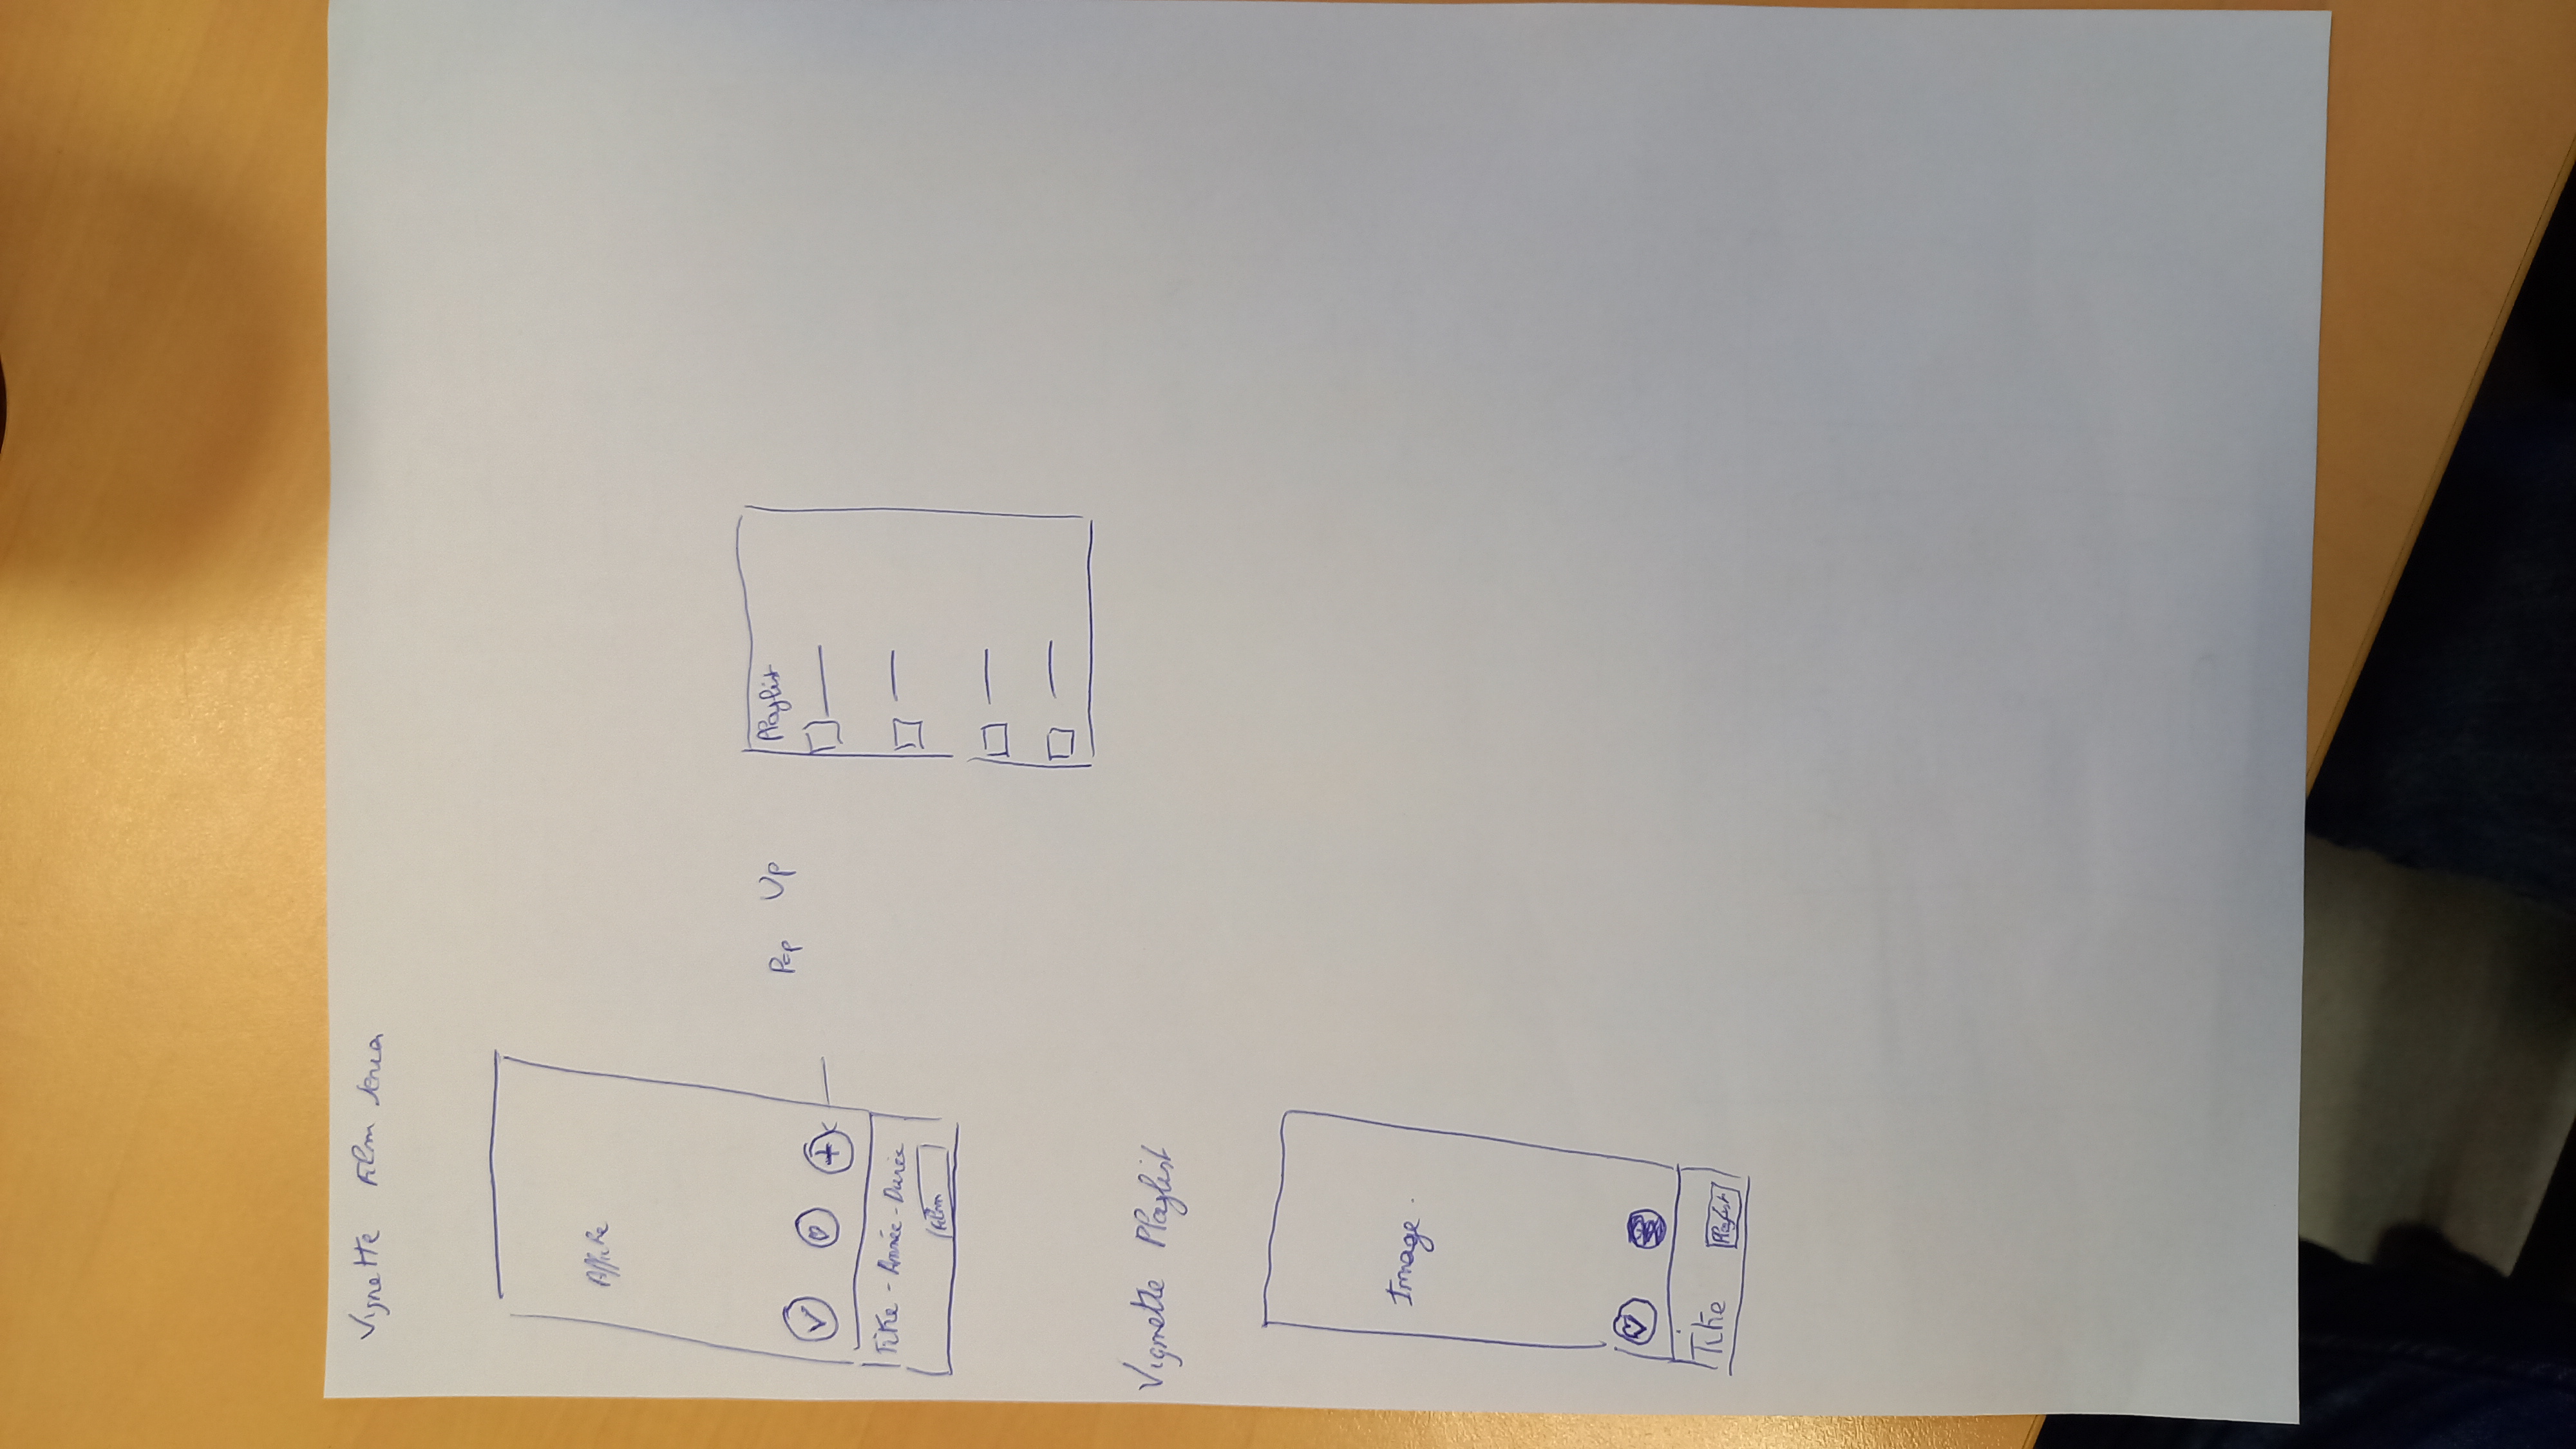 Vignette Film
Affiche
Titre - Année - Durée
Film
Pop Up
Playlist
Vignette Playlist
Image.
Titre
Playlist